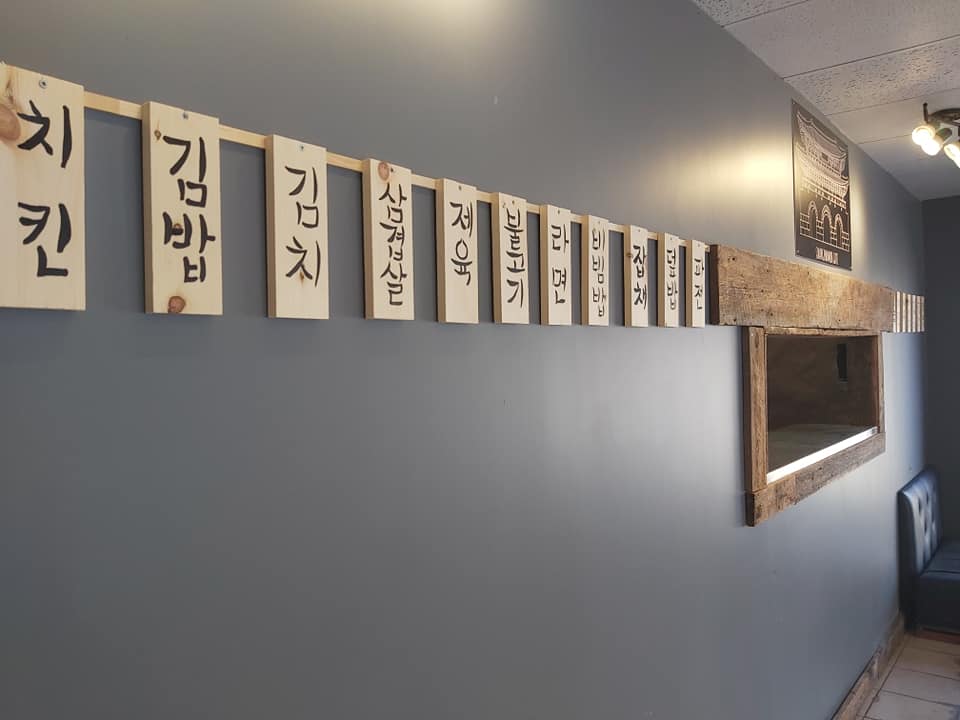 치킨
김밥
김치
삼겹살
제육
불고기
라면
비빔밥
잡채
덮밥
파전